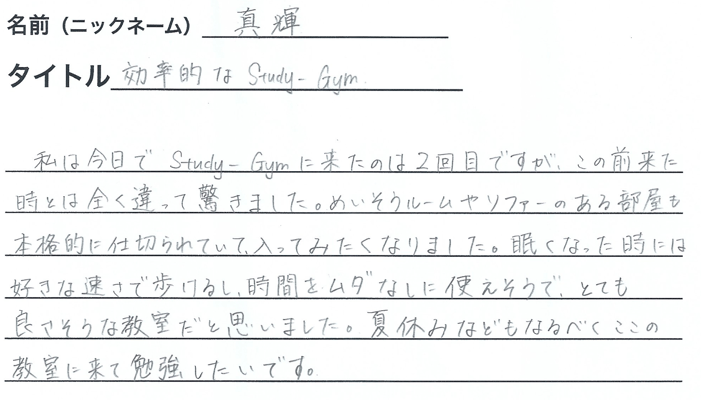 名前（ニックネーム） 真輝
タイトル 効率的な Study-Gym.
私は今日で Study-Gymに来たのは2回目ですが、この前来た
時とは全く違って驚きました。めいそうルームやソファーのある部屋も
本格的に仕切られていて、入ってみたくなりました。眠くなった時には
好きな速さで歩けるし、時間をムダなしに使えそうで、とても
良さそうな教室だと思いました。夏休みなどもなるべくここの
教室に来て勉強したいです。